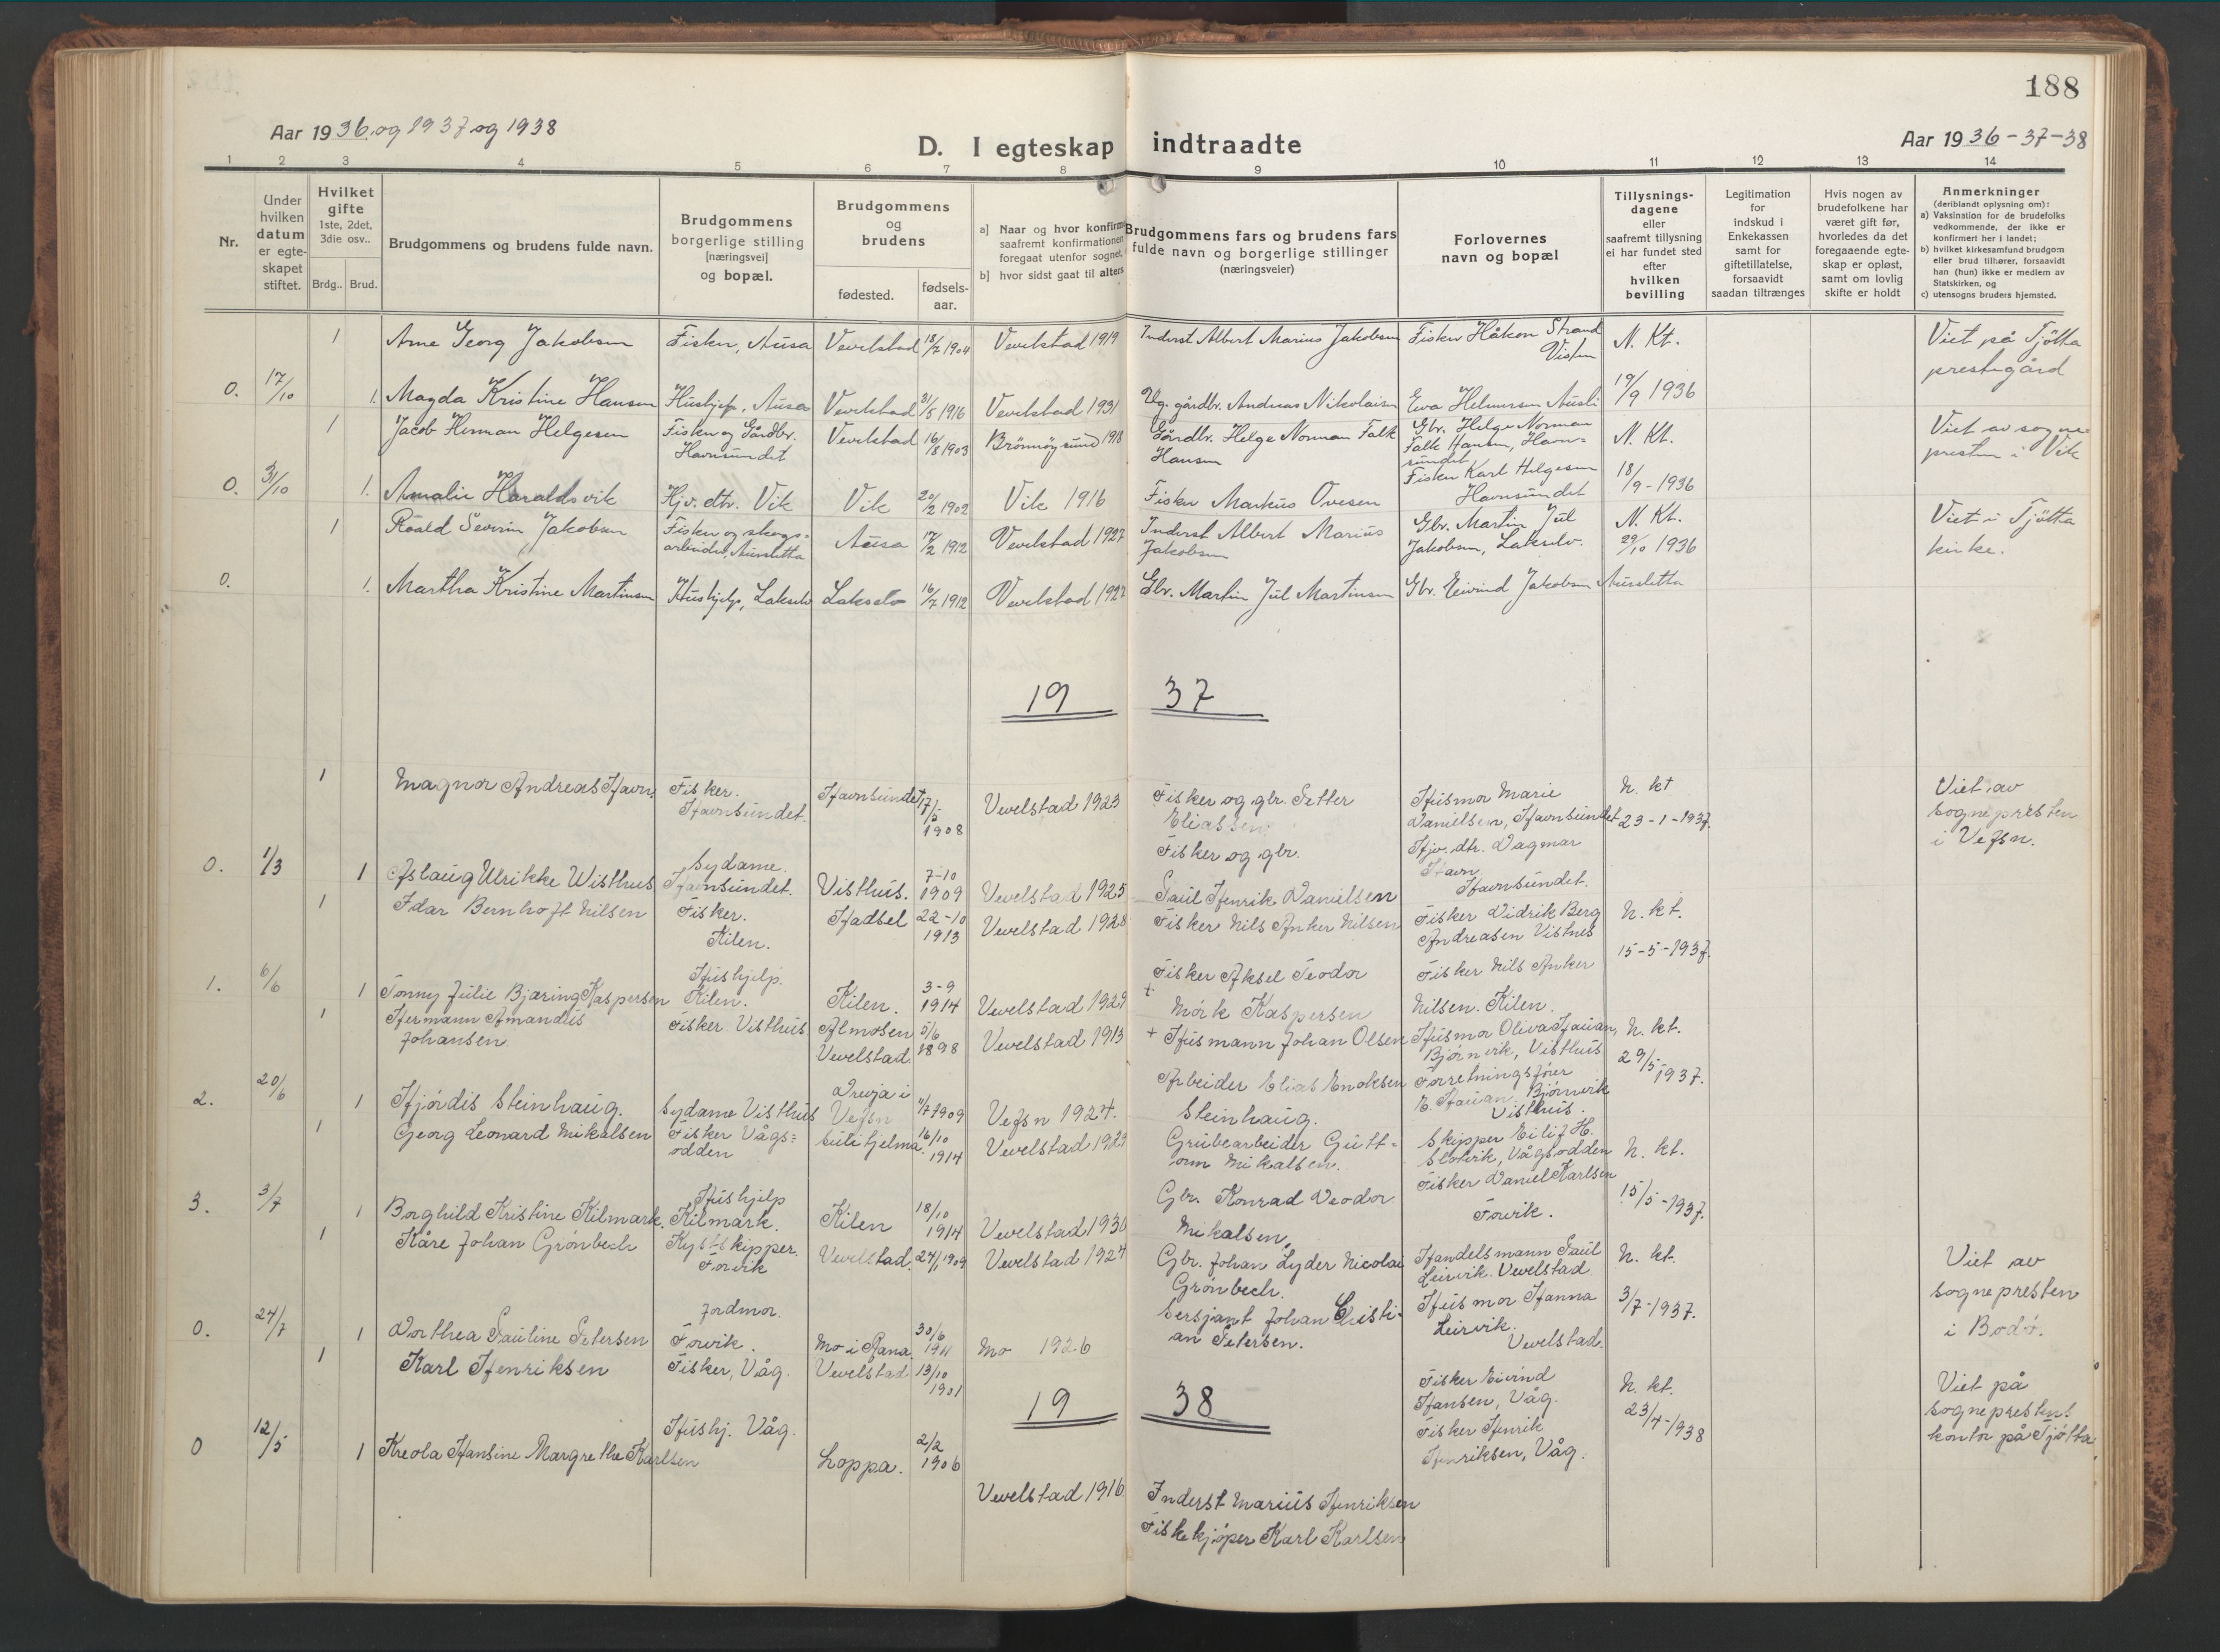 188
Aar 1936 og 1937 og 1938
D. I egteskap indtraadte
Aar 1936-37-38
1 2 3 4 5 6 7 8 9 10 11 12 13 14
Nr.
Under hvilken datum er egte-skapet stiftet.
Hvilket gifte 1ste, 2det, 3die osv..
Brdg.. Brud.
Brudgommens og brudens fulde navn.
Brudgommens borgerlige stilling [næringsvei] og bopæl.
Brudgommens og brudens
fødested. fødsels-aar.
a) Naar og hvor konfirm
saafremt konfirmationen
foregaat utenfor sognet,
b) hvor sidst gaat til alters
Brudgommens fars og brudens fars
fulde navn og borgerlige stillinger
(næringsveier)
Forlovernes
navn og bopæl
Tillysnings-
dagene
eller
saafremt tillysning
ei har fundet sted
efter
hvilken
bevilling
Legitimation
for
indskud i
Enkekassen
samt for
giftetillatelse,
forsaavidt
saadan tiltrænges
Hvis nogen av
brudefolkene har
været gift før,
hvorledes da det
foregaaende egte-
skap er opløst,
samt om lovlig
skifte er holdt
Anmerkninger
(deriblandt oplysning om):
a) Vaksination for de brudefolks
vedkommende, der ikke er
konfirmert her i landet;
b) hvilket kirkesamfund brudgom
eller brud tilhører, forsaavidt
han (hun) ikke er medlem av
Statskirken, og
c) utensogns bruders hjemsted.
1 Arne Georg Jakobsen Fisker, Ausa Vevelstad 18/7 1904 Vevelstad 1919 Inderst Albert Marius Jakobsen Fisker Håkon Strand Visten N. Kt. Viet på Tjøtta prestegård
0. 17/10 1. Magda Kristine Hansen Hushjelp, Ausa Vevelstad 31/5 1916 Vevelstad 1931 Ug. gårdbr. Andreas Nikolaisen Ewa Helmersen 19/9 1936
1 Jacob Herman Helgesen Fisker og Gårdbr. Havnsundet Vevelstad 16/8 1903 Brönnöysund 1918 Gårdbr. Helge Norman Falk Hansen Gbr. Helge Norman Falk Hansen, Havn=sundet N. Kt. Viet av sogne=presten i Vik
0. 31/10 1. Amalie Haraldsvik Hjv. dtr. Vik Vik 20/2 1902 Vik 1916 Fisker Markus Ovesen Fisker Karl Helgesen Havnsundet 18/9-1936
1 Roald Severin Jakobsen Fisker og skogs=arbeider, Aursletta Ausa 17/2 1912 Vevelstad 1927 Inderst Albert Marius Jakobsen Gbr. Martin Jul Jakobsen, Lakselv. N. Kt. 29/10 1936 Viet i Tjøtta kirke.
0. 1. Martha Kristine Martinsen Hushjelp, Lakselv Lakselv 16/7 1912 Vevelstad 1927 Gbr. Martin Jul Martinsen Gbr. Eivind Jakobsen Aursletta
19 37
1 Magnor Andreas Havn. Fisker. Havnsundet. Havnsundet 17/5 1908 Vevelstad 1923 Fisker og gbr. Petter Eliassen Husmor Marie Danielsen, Havnsundet N. kt 23-1-1937. Viet av sognepresten i Vefsn.
0. 1/3 1 Aslaug Ulrikke Wisthus Sydame. Havnsundet. Visthus. 7-10 1909 Vevelstad 1925 Fisker og gbr. Paul Henrik Danielsen Hjv. dtr. Dagmar Havn Havnsundet.
1 Idar Bernhoft Nilsen Fisker. Kilen. Hadsel 22-10 1913 Vevelstad 1928 Fisker Nils Anker Nilsen Fisker Didrik Berg Andreasen Vistnes N. kt. 15-5-1937.
1. 6/6 1 Tonny Julie Bjæring Kaspersen Hushjelp. Kilen. Kilen. 3-9 1914 Vevelstad 1929 Fisker Aksel Teodor + Mörk Kaspersen Fisker Nils Anker Nilsen. Kilen.
1 Hermann Amandus Johansen Fisker Visthus Almosen Vevelstad 5/6 1898 Vevelstad 1913 + Husmann Johan Olsen Husmor Oliva Hauan, Bjørnvik, Visthus N. kt. 29/5 1937.
2. 20/6 1 Hjördis Steinhaug. Sydame Visthus Drevja i Vefsn 11/7 1909 Vefsn 1924. Arbeider Elias Enoksen Steinhaug. Forretningsfører E. Hauan. Bjørnvik Visthus.
1 Georg Leonard Mikalsen Fisker Vågs=odden Sulitjelma. 16/10 1914 Vevelstad 1929 Grubearbeider Gutt=orm Mikalsen. Skipper Eilif H. Slotvik, Vågsodden N. kt.
3. 3/7 1 Borghild Kristine Kilmark. Hushjelp Kilmark. Kilen 18/10 1914 Vevelstad 1930 Gbr. Konrad Teodor Mikalsen. Fisker Daniel Karlsen Forvik. 15/5-1937.
1 Kåre Johan Grönbech Kystskipper. Forvik Vevelstad. 24/1 1909 Vevelstad 1924 Gbr. Johan Lyder Nicolai Grönbech. Handelsmann Paul Leirvik. Vevelstad N. kt. Viet av sognepresten i Bodö.
0. 24/7 1 Dorthea Pauline Petersen Jordmor. Forvik. Mo i Rana. 30/6 1911 Mo 1926 Sersjant Johan Cristi-an Petersen. Husmor Hanna Leirvik. Vevelstad. 3/7-1937.
1 Karl Henriksen Fisker, Våg. Vevelstad 13/10 1901
19 38
Fisker Eivind Hansen, Våg. N. kt. 23/4-1938 Viet på sogneprestens kontor på Tjøtta
0 12/5 1 Kreola Hansine Margrethe Karlsen Hushj. Våg. Loppa. 2/2 1906 Fisker Henrik Henriksen, Våg.
Vevelstad 1916 Inderst Marius Henriksen
Fiskekjöper Karl Karlsen